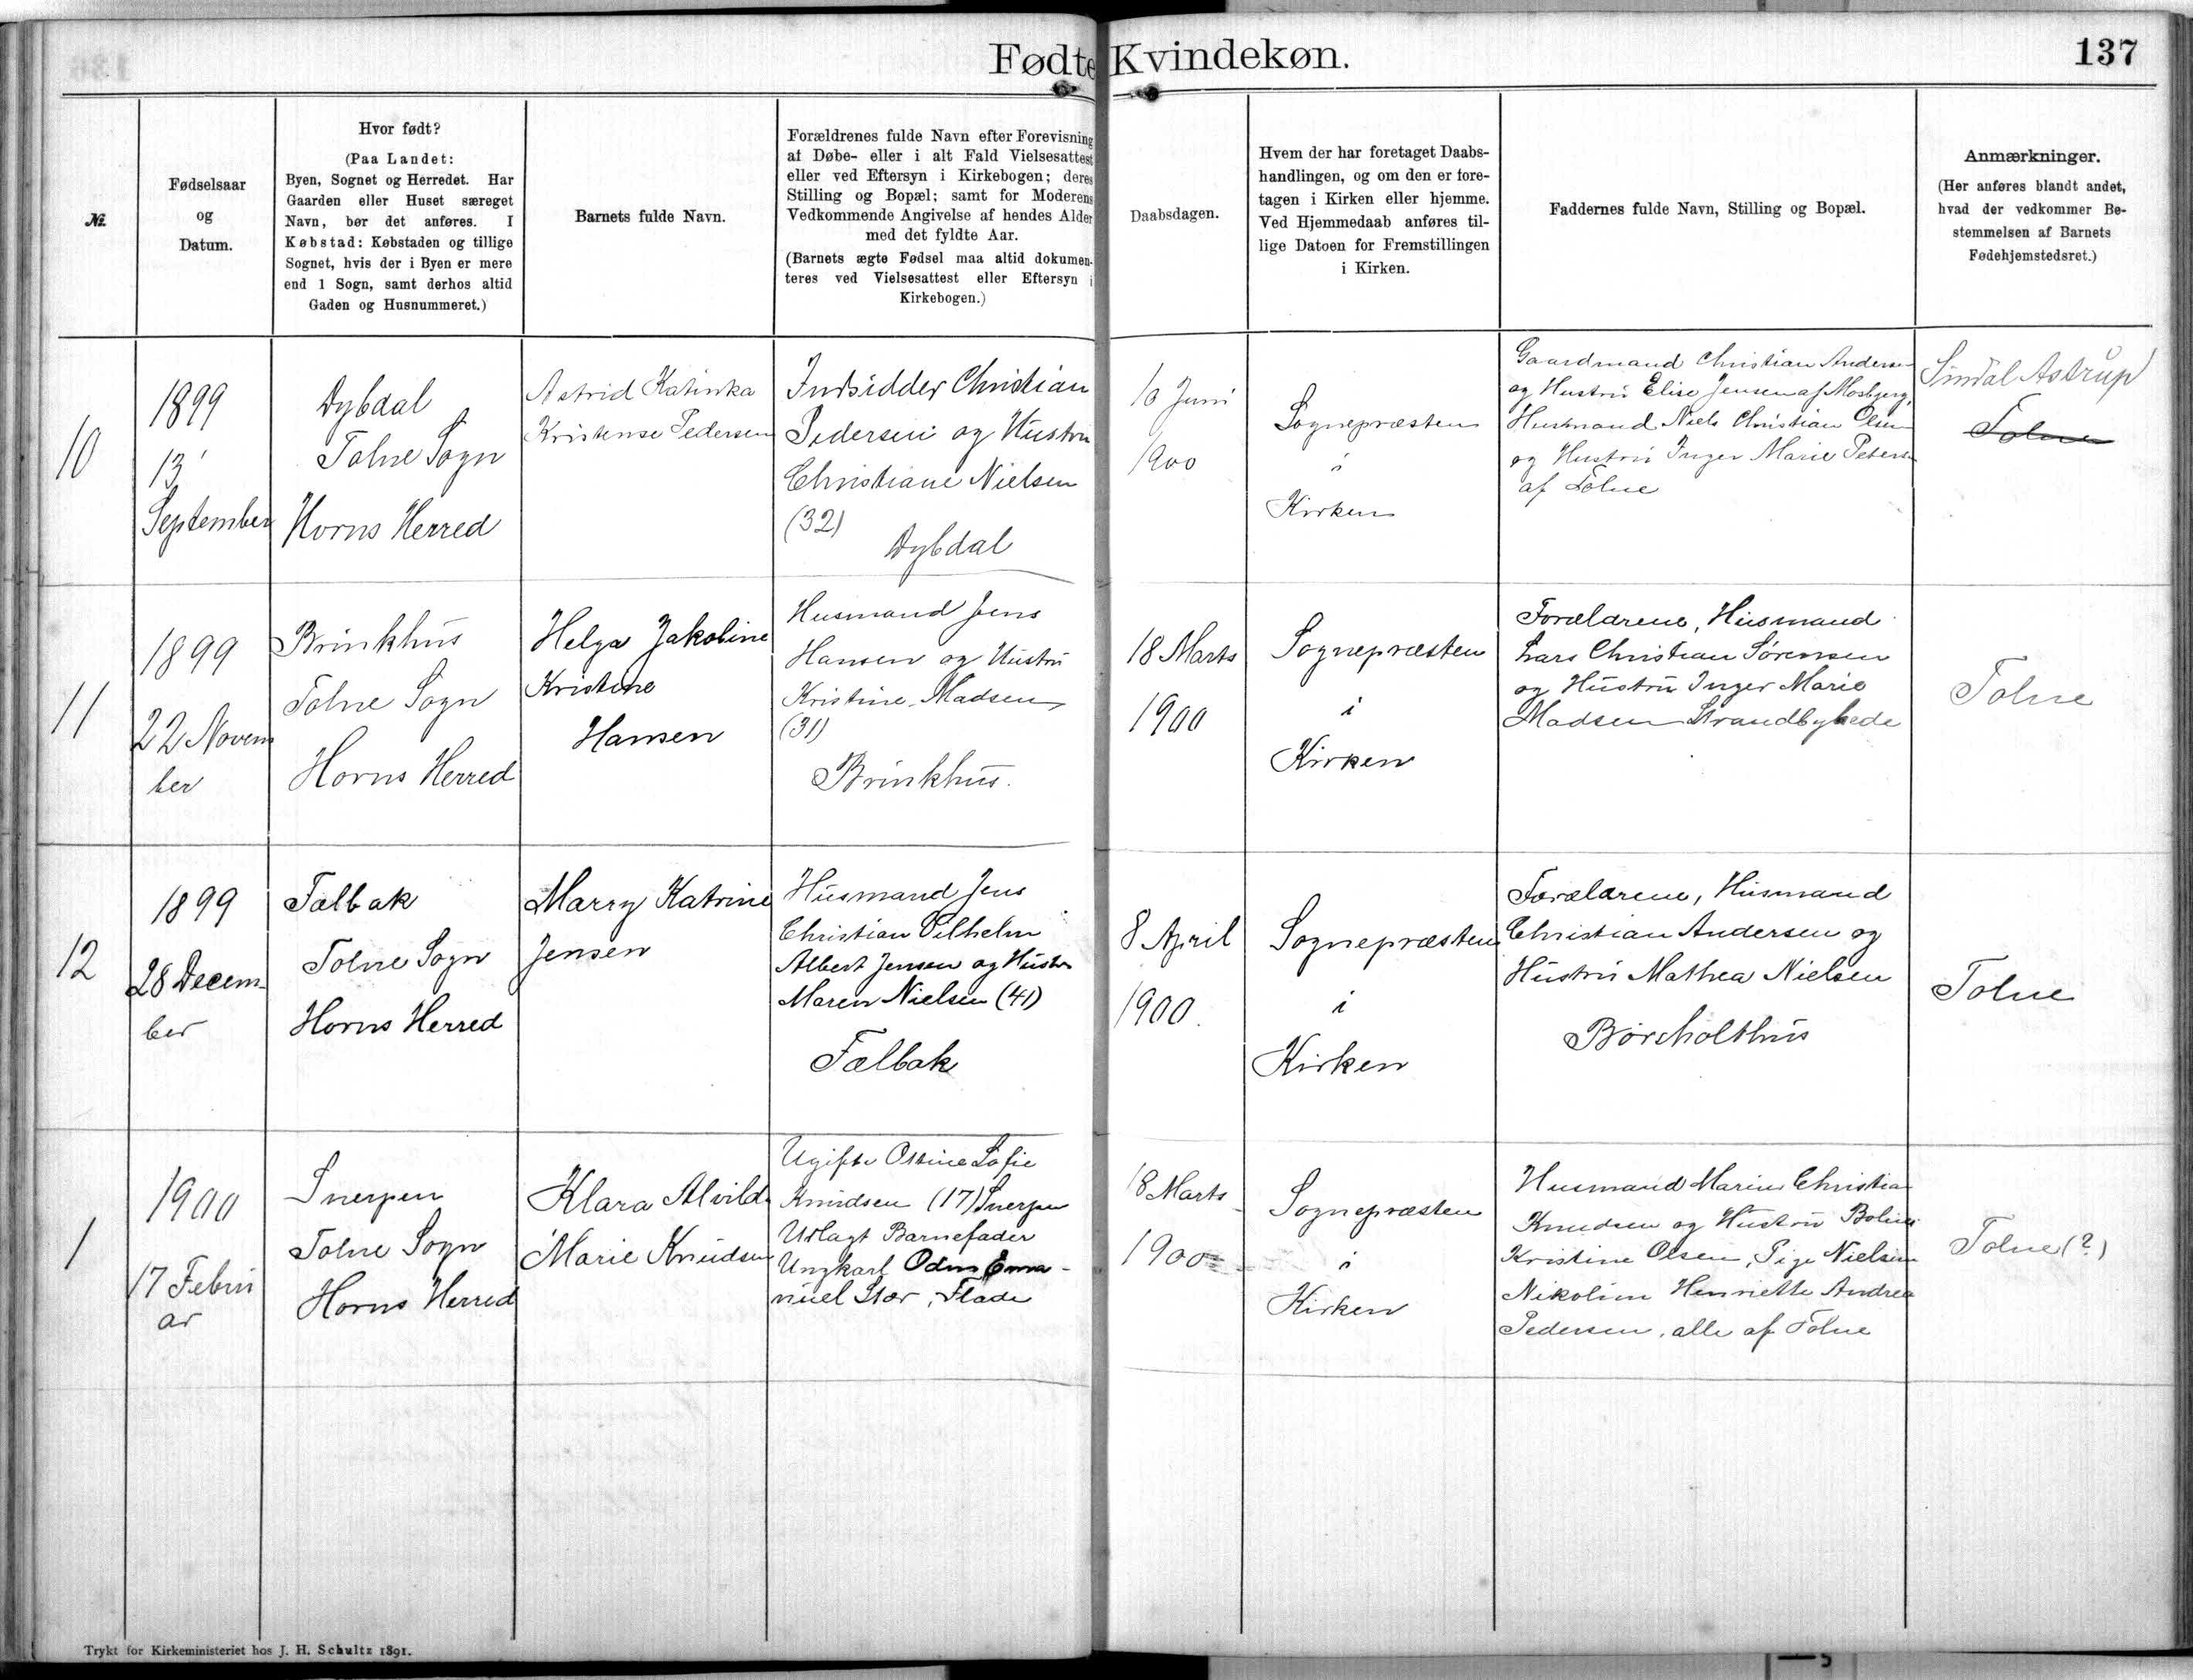 Fødte Kvindekøn.
137
№.
Fødselsaar
og
Datum.
Hvor født?
(Paa Landet:
Byen, Sognet og Herredet. Har
Gaarden eller Huset særeget
Navn, bør det anføres. I
Købstad: Købstaden og tillige
Sognet, hvis der i Byen er mere
end 1 Sogn, samt derhos altid
Gaden og Husnummeret.)
Barnets fulde Navn.
Forældrenes fulde Navn efter Forevisning
af Døbe- eller i alt Fald Vielsesattest
eller ved Eftersyn i Kirkebogen; deres
Stilling og Bopæl; samt for Moderens
Vedkommende Angivelse af hendes Alder
med det fyldte Aar.
(Barnets ægte Fødsel maa altid dokumen-
teres ved Vielsesattest eller Eftersyn i
Kirkebogen.)
Daabsdagen.
Hvem der har foretaget Daabs-
handlingen, og om den er fore-
tagen i Kirken eller hjemme.
Ved Hjemmedaab anføres til-
lige Datoen for Fremstillingen
i Kirken.
Faddernes fulde Navn, Stilling og Bopæl.
Anmærkninger.
(Her anføres blandt andet,
hvad der vedkommer Be-
stemmelsen af Barnets
Fødehjemstedsret.)
10
1899
13
September
Dybdal
Tolne Sogn
Horns Herred
Astrid Katinka
Kristense Pedersen
Indsidder Christian
Pedersen og Hustru
Christiane Nielsen
(32)
Dybdal
Juni
1900
Sognepræsten
i
Kirken
Gaardmand Christian Andersen
og Hustru Elise Jensen af Mosbjerg,
Husmand Niels Christian Olsen
og Hustru Inger Marie Petersen
af Tolne
Sindal Astrup
Tolne
11
1899
22 Novem
ber
Brinkhus
Tolne Sogn
Horns Herred
Helga Jakobine
Kristine
Hansen
Husmand Jens
Hansen og Hustru
Kristine Madsen
(31)
Brinkhus.
18 Marts
1900
Sognepræsten
i
Kirken
Forældrene, Husmand
Lars Christian Sørensen
og Hustru Inger Marie
Madsen Strandbyhede
Tolne
12
1899
28 Decem-
ber
Tolne Sogn
Horns Herred
Marry Katrine
Jensen
Husmand Jens
Christian Vilhelm
Albert Jensen og Hustru
Maren Nielsen (41)
8 April
1900.
Sognepræsten
i
Kirken
Forældrene, Husmand
Christian Andersen og
Hustru Mathea Nielsen
Tolne
1
1900
17 Febru
ar
Snerpen
Tolne Sogn
Horns Herred
Klara Alvilda
Marie Knudsen
Ugifte Ottine Sofie
Knudsen (17) Snerpen
Udlagt Barnefader
Ungkarl Odin Ema-
nuel Stær, Flade
18 Marts
1900
Sognepræsten
i
Kirken
Husmand Marius Christian
Knudsen og Hustru Boline
Kristine Olsen, Pige Nielsine
Nikoline Henriette Andrea
Pedersen, alle af Tolne
Tolne (?)
Trykt for Kirkeministeriet hos J. H. Schultz 1891.